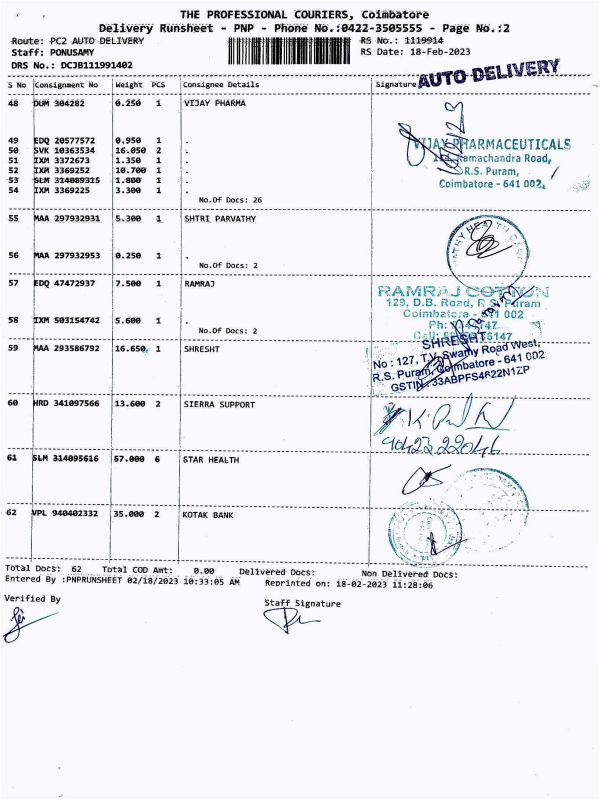 THE PROFESSIONAL COURIERS, Coimbatore
Delivery Runsheet - PNP - Phone No.:0422-3505555 - Page No.:2
Route: PC2 AUTO DELIVERY
RS No.: 1119914
Staff: PONUSAMY
RS Date: 18-Feb-2023
DRS No.: DCJB111991402
AUTO DELIVERY
S No Consignment No Weight PCS Consignee Details Signature
48 DUM 304282 0.250 1 VIJAY PHARMA
49 EDQ 20577572 0.950 1 .
50 SVK 10363534 16.050 2 .
51 IXM 3372673 1.350 1 .
52 IXM 3369252 10.700 1 .
53 SLM 314089315 1.800 1 .
54 IXM 3369225 3.300 1 .
No.Of Docs: 26
VIJAY PHARMACEUTICALS
Ramachandra Road,
R.S. Puram,
Coimbatore - 641 002.
55 MAA 297932931 5.300 1 SHTRI PARVATHY
56 MAA 297932953 0.250 1 .
No.Of Docs: 2
HEALTH CARE
57 EDQ 47472937 7.500 1 RAMRAJ
58 IXM 503154742 5.600 1 .
No.Of Docs: 2
RAMRAJ COTTON
129, D.B. Road, R.S. Puram
Coimbatore - 641 002
59 MAA 293586792 16.650 1 SHRESHT
SHRESHT
No : 127, T.V. Swamy Road West,
R.S. Puram, Coimbatore - 641 002
GSTIN : 33ABPFS4622N1ZP
60 HRD 341097566 13.600 2 SIERRA SUPPORT
61 SLM 314095616 57.000 6 STAR HEALTH
62 VPL 940402332 35.000 2 KOTAK BANK
Total Docs: 62 Total COD Amt: 0.00 Delivered Docs: Non Delivered Docs:
Entered By :PNPRUNSHEET 02/18/2023 10:33:05 AM Reprinted on: 18-02-2023 11:28:06
Verified By
Staff Signature